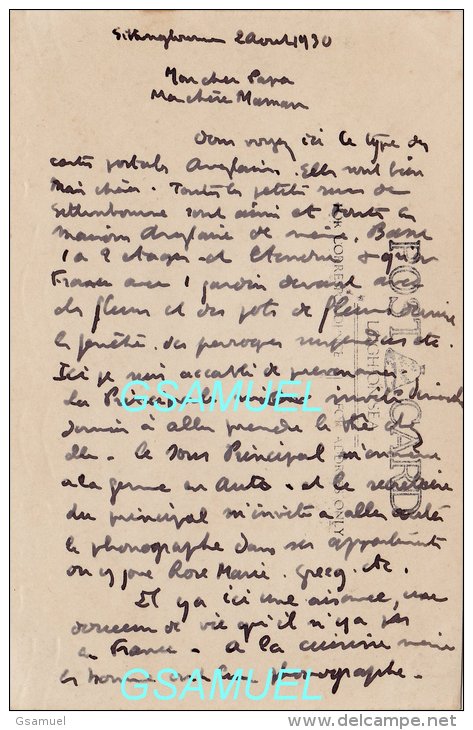 Sittingbourne 2 Aout 1930
Mon cher Papa
Ma chère Maman
Vous voyez ici le type des
cartes postales Anglaises. Elles sont bien
mais chères. Toutes les petites rues de
Sittinbourne sont ainsi et toutes les
maisons Anglaise de même. Basse
1 a 2 etages et
France avec 1 jardin devant avec
des fleurs et des pots de fleurs derrière
les fenêtres. des perroquets
Ici je suis accablé de
La Principale m'invite
demain à aller prendre le thé
elle. Le sous Principal m'emmène
a la gare en Auto. et le secrétaire
du principal m'invite a aller écouter
le phonographe dans ses appartements
on y joue Rose Marie. Grieg. etc.
Il y a ici une aisance, une
douceur de vie qu'il n'y a pas
en France. A la cuisine même
les bonnes ont leur phonographe.
POST CARD
LEIGH-ON-SEA
ONLY
GSAMUEL
GSAMUEL
Gsamuel
www.delcampe.net